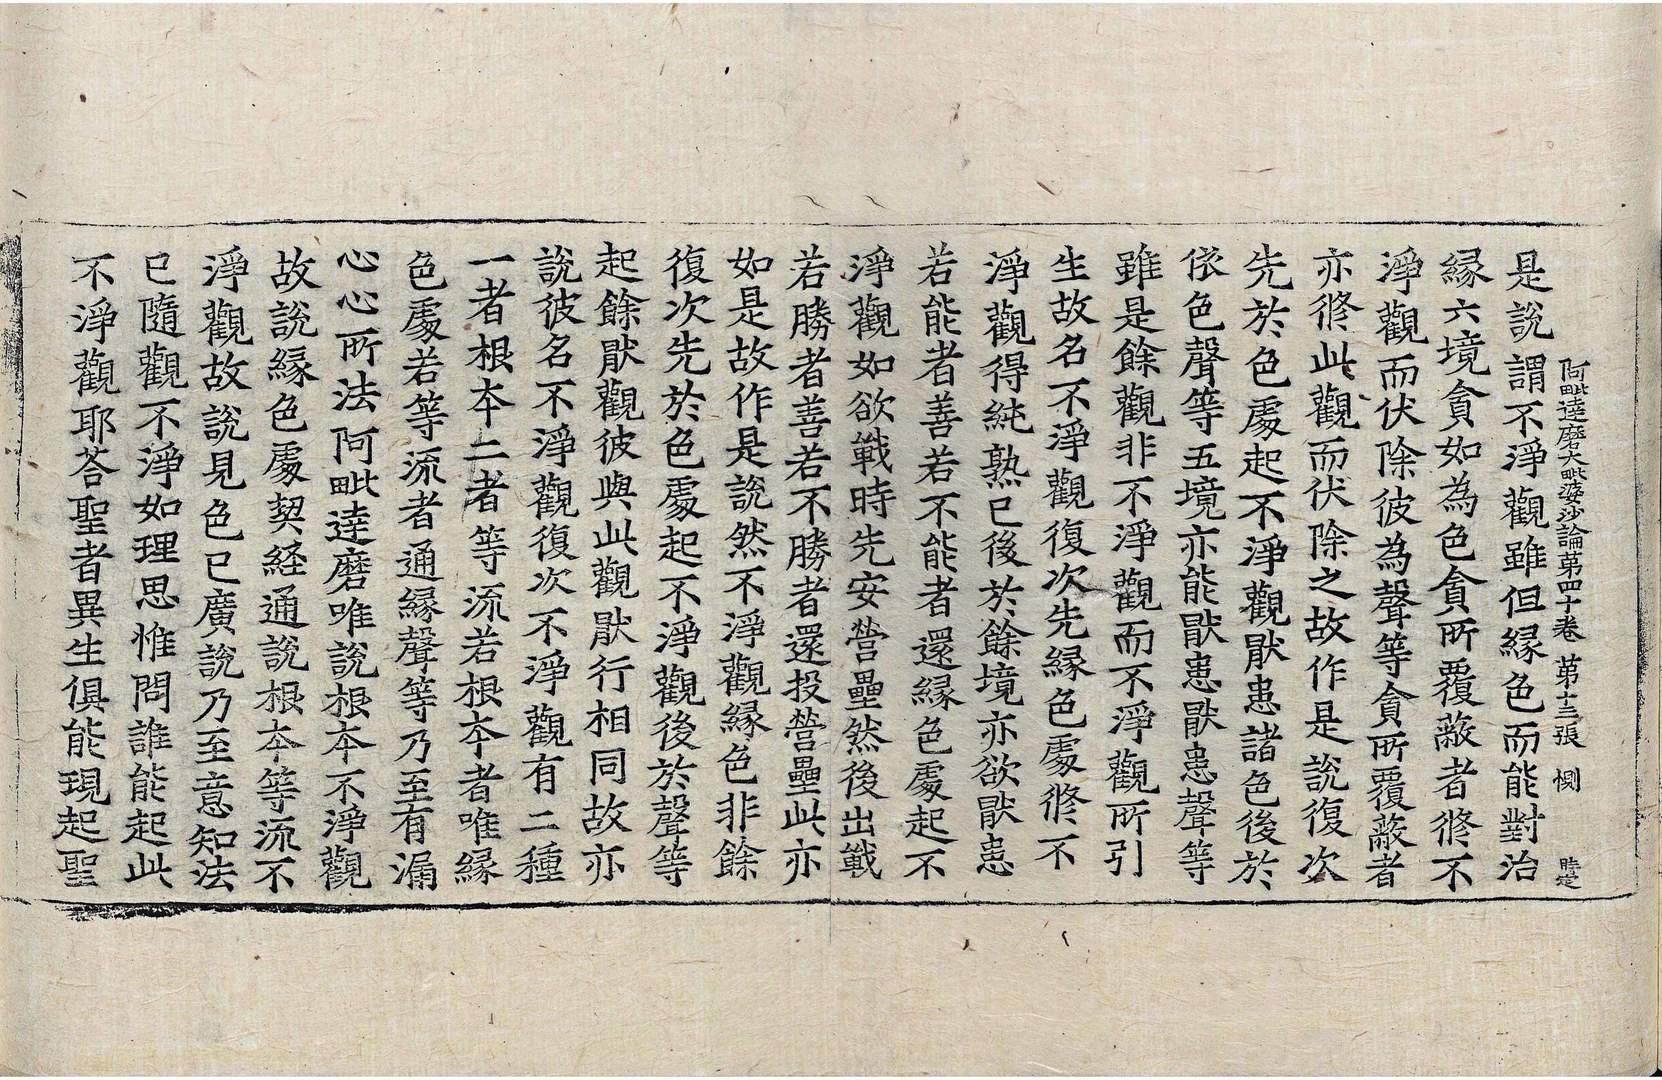 阿毗達磨大毗婆沙論第四十卷 第十三張 惻
是說謂不淨觀雖但緣色而能對治
緣六境貪如為色貪所覆蔽者修不
淨觀而伏除彼為聲等貪所覆蔽者
亦修此觀而伏除之故作是說復次
先於色處起不淨觀猒患諸色後於
依色聲等五境亦能猒患猒患聲等
雖是餘觀非不淨觀而不淨觀所引
生故名不淨觀復次先緣色處修不
淨觀得純熟已後於餘境亦欲猒患
若能者善若不能者還緣色處起不
淨觀如欲戰時先安營壘然後出戰
若勝者善若不勝者還投營壘此亦
如是故作是說然不淨觀緣色非餘
復次先於色處起不淨觀後於聲等
起餘猒觀彼與此觀猒行相同故亦
說彼名不淨觀復次不淨觀有二種
一者根本二者等流若根本者唯緣
色處若等流者通緣聲等乃至有漏
心心所法阿毗達磨唯說根本不淨觀
故說緣色處契經通說根本等流不
淨觀故說見色已廣說乃至意知法
已隨觀不淨如理思惟問誰能起此
不淨觀耶荅聖者異生俱能現起聖